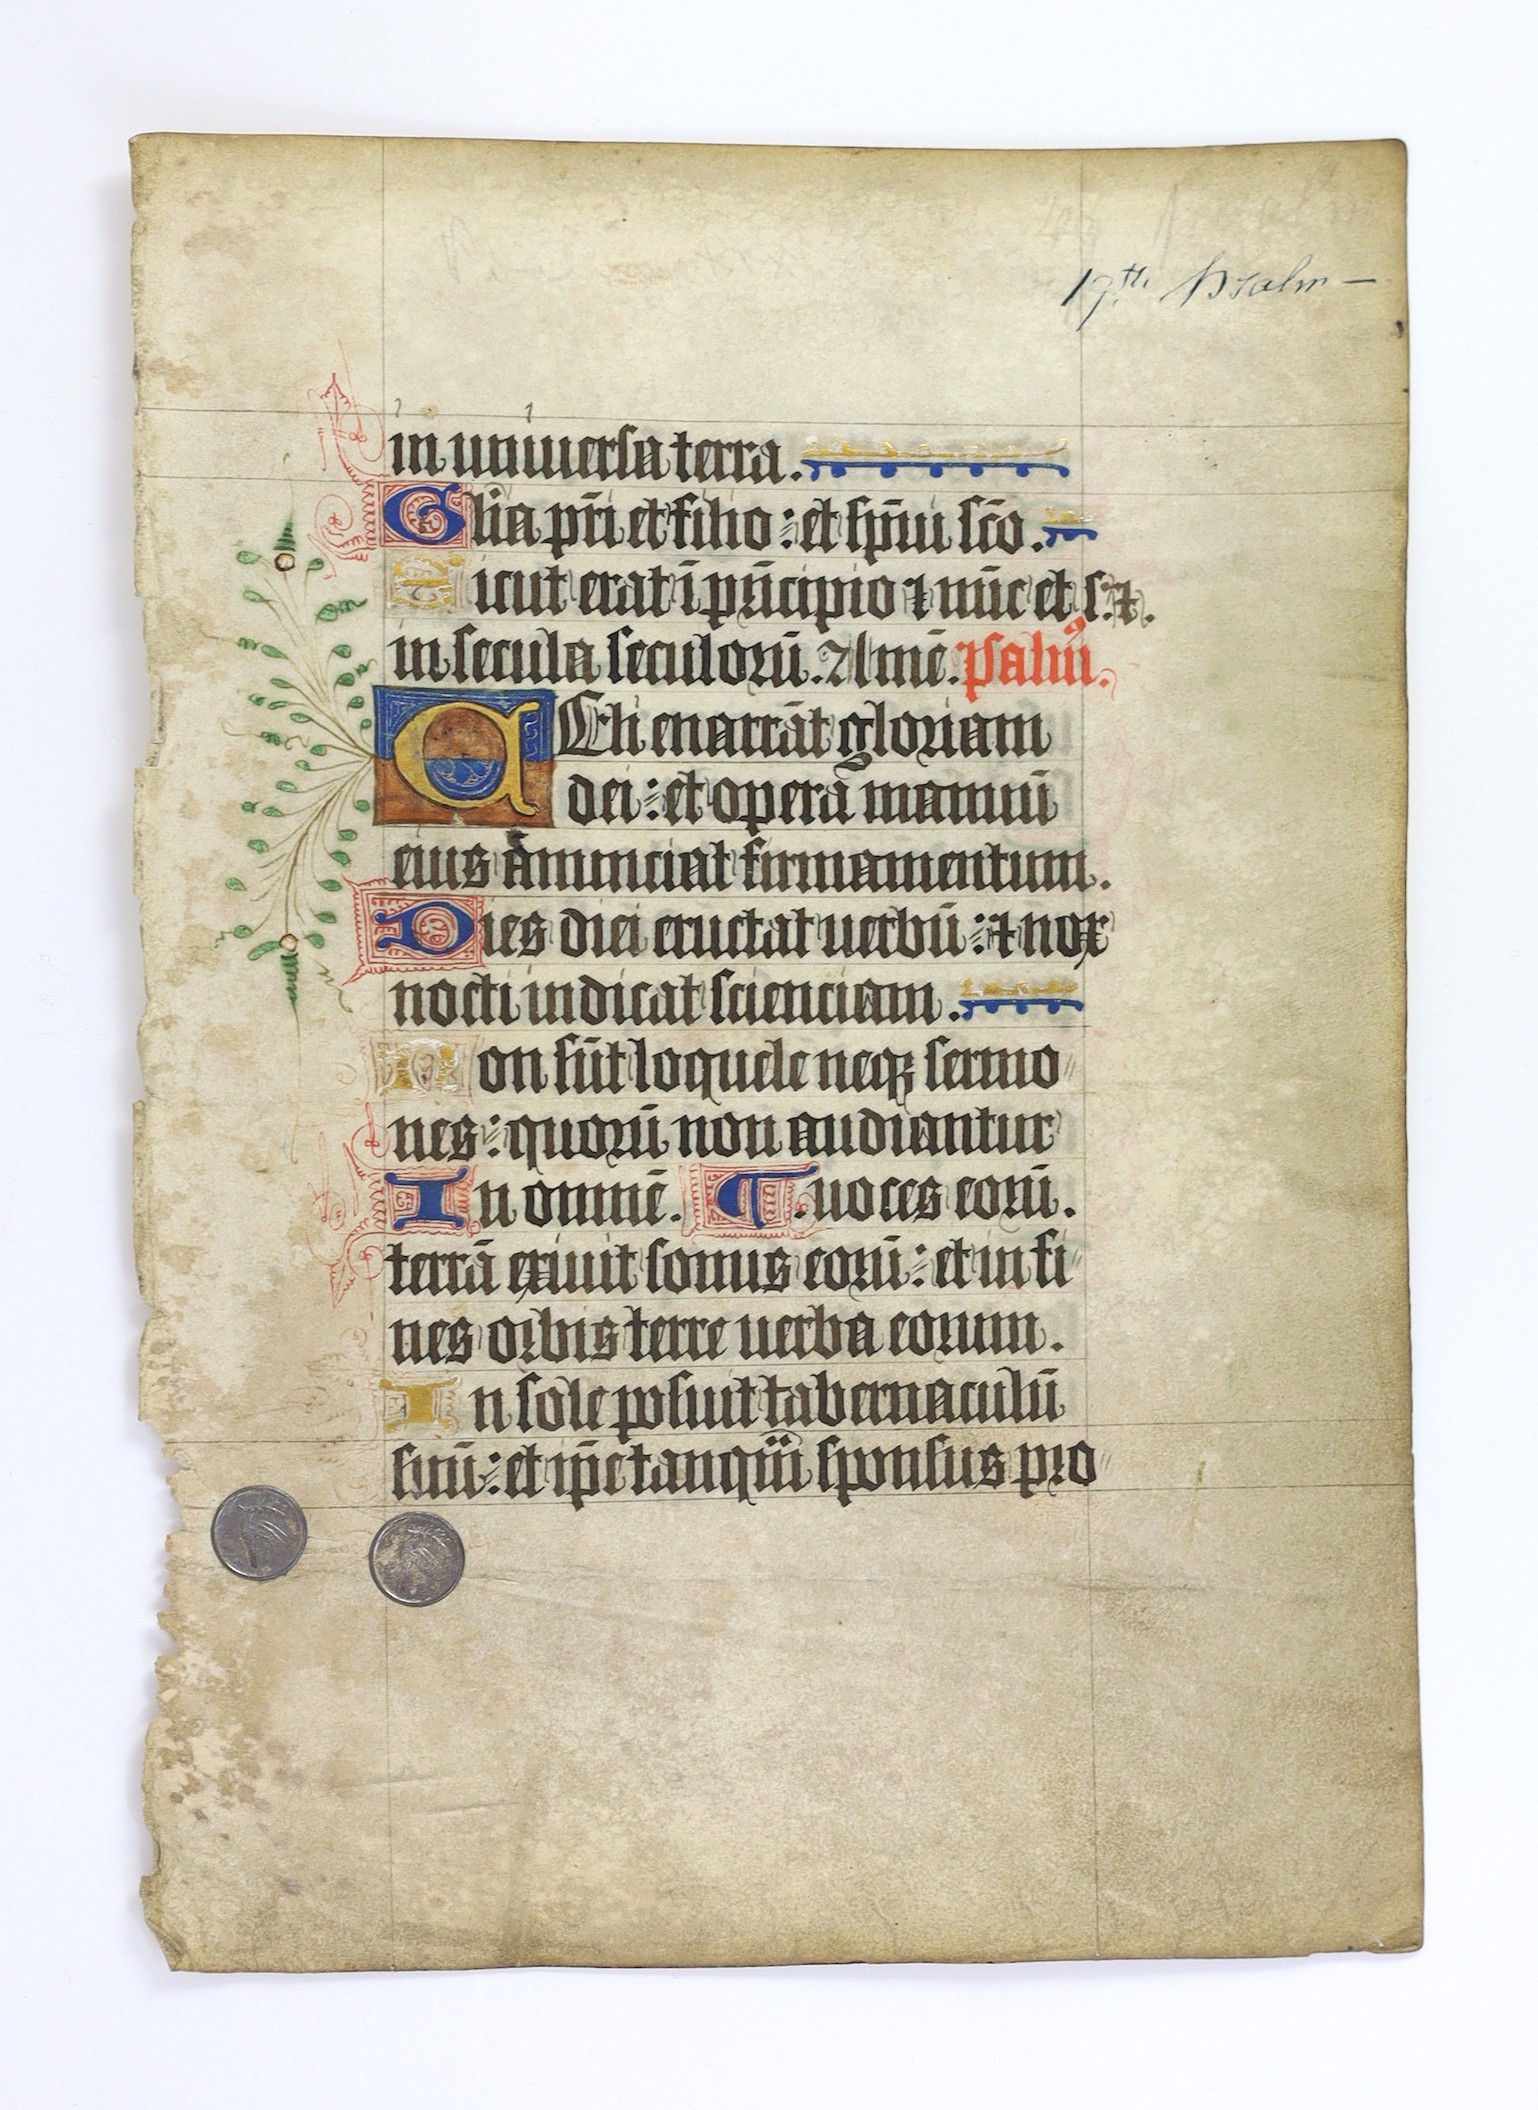 19th. Psalm —
in uniuersa terra.
Glia pr̄i et filio : et sp̄iu sc̄o.
Sicut erat ī prīcipio ⁊ nūc et s.⁊.
in secula seculorū. Amē. psalm̄9.
Celi enarrāt gloriam
dei : et opera manuū
eius ānunciat firmamentum.
Dies diei eructat uerbū : ⁊ nox
nocti indicat scienciam.
Non sūt loquele neqꝫ sermo〃
nes : quorū non audiantur
In omnē. ¶ .uoces eorū.
terrā exiuit sonus eorū : et in fi〃
nes orbis terre uerba eorum.
In sole posuit tabernaculū
suū : et ip̄e tanquā sponsus pro〃